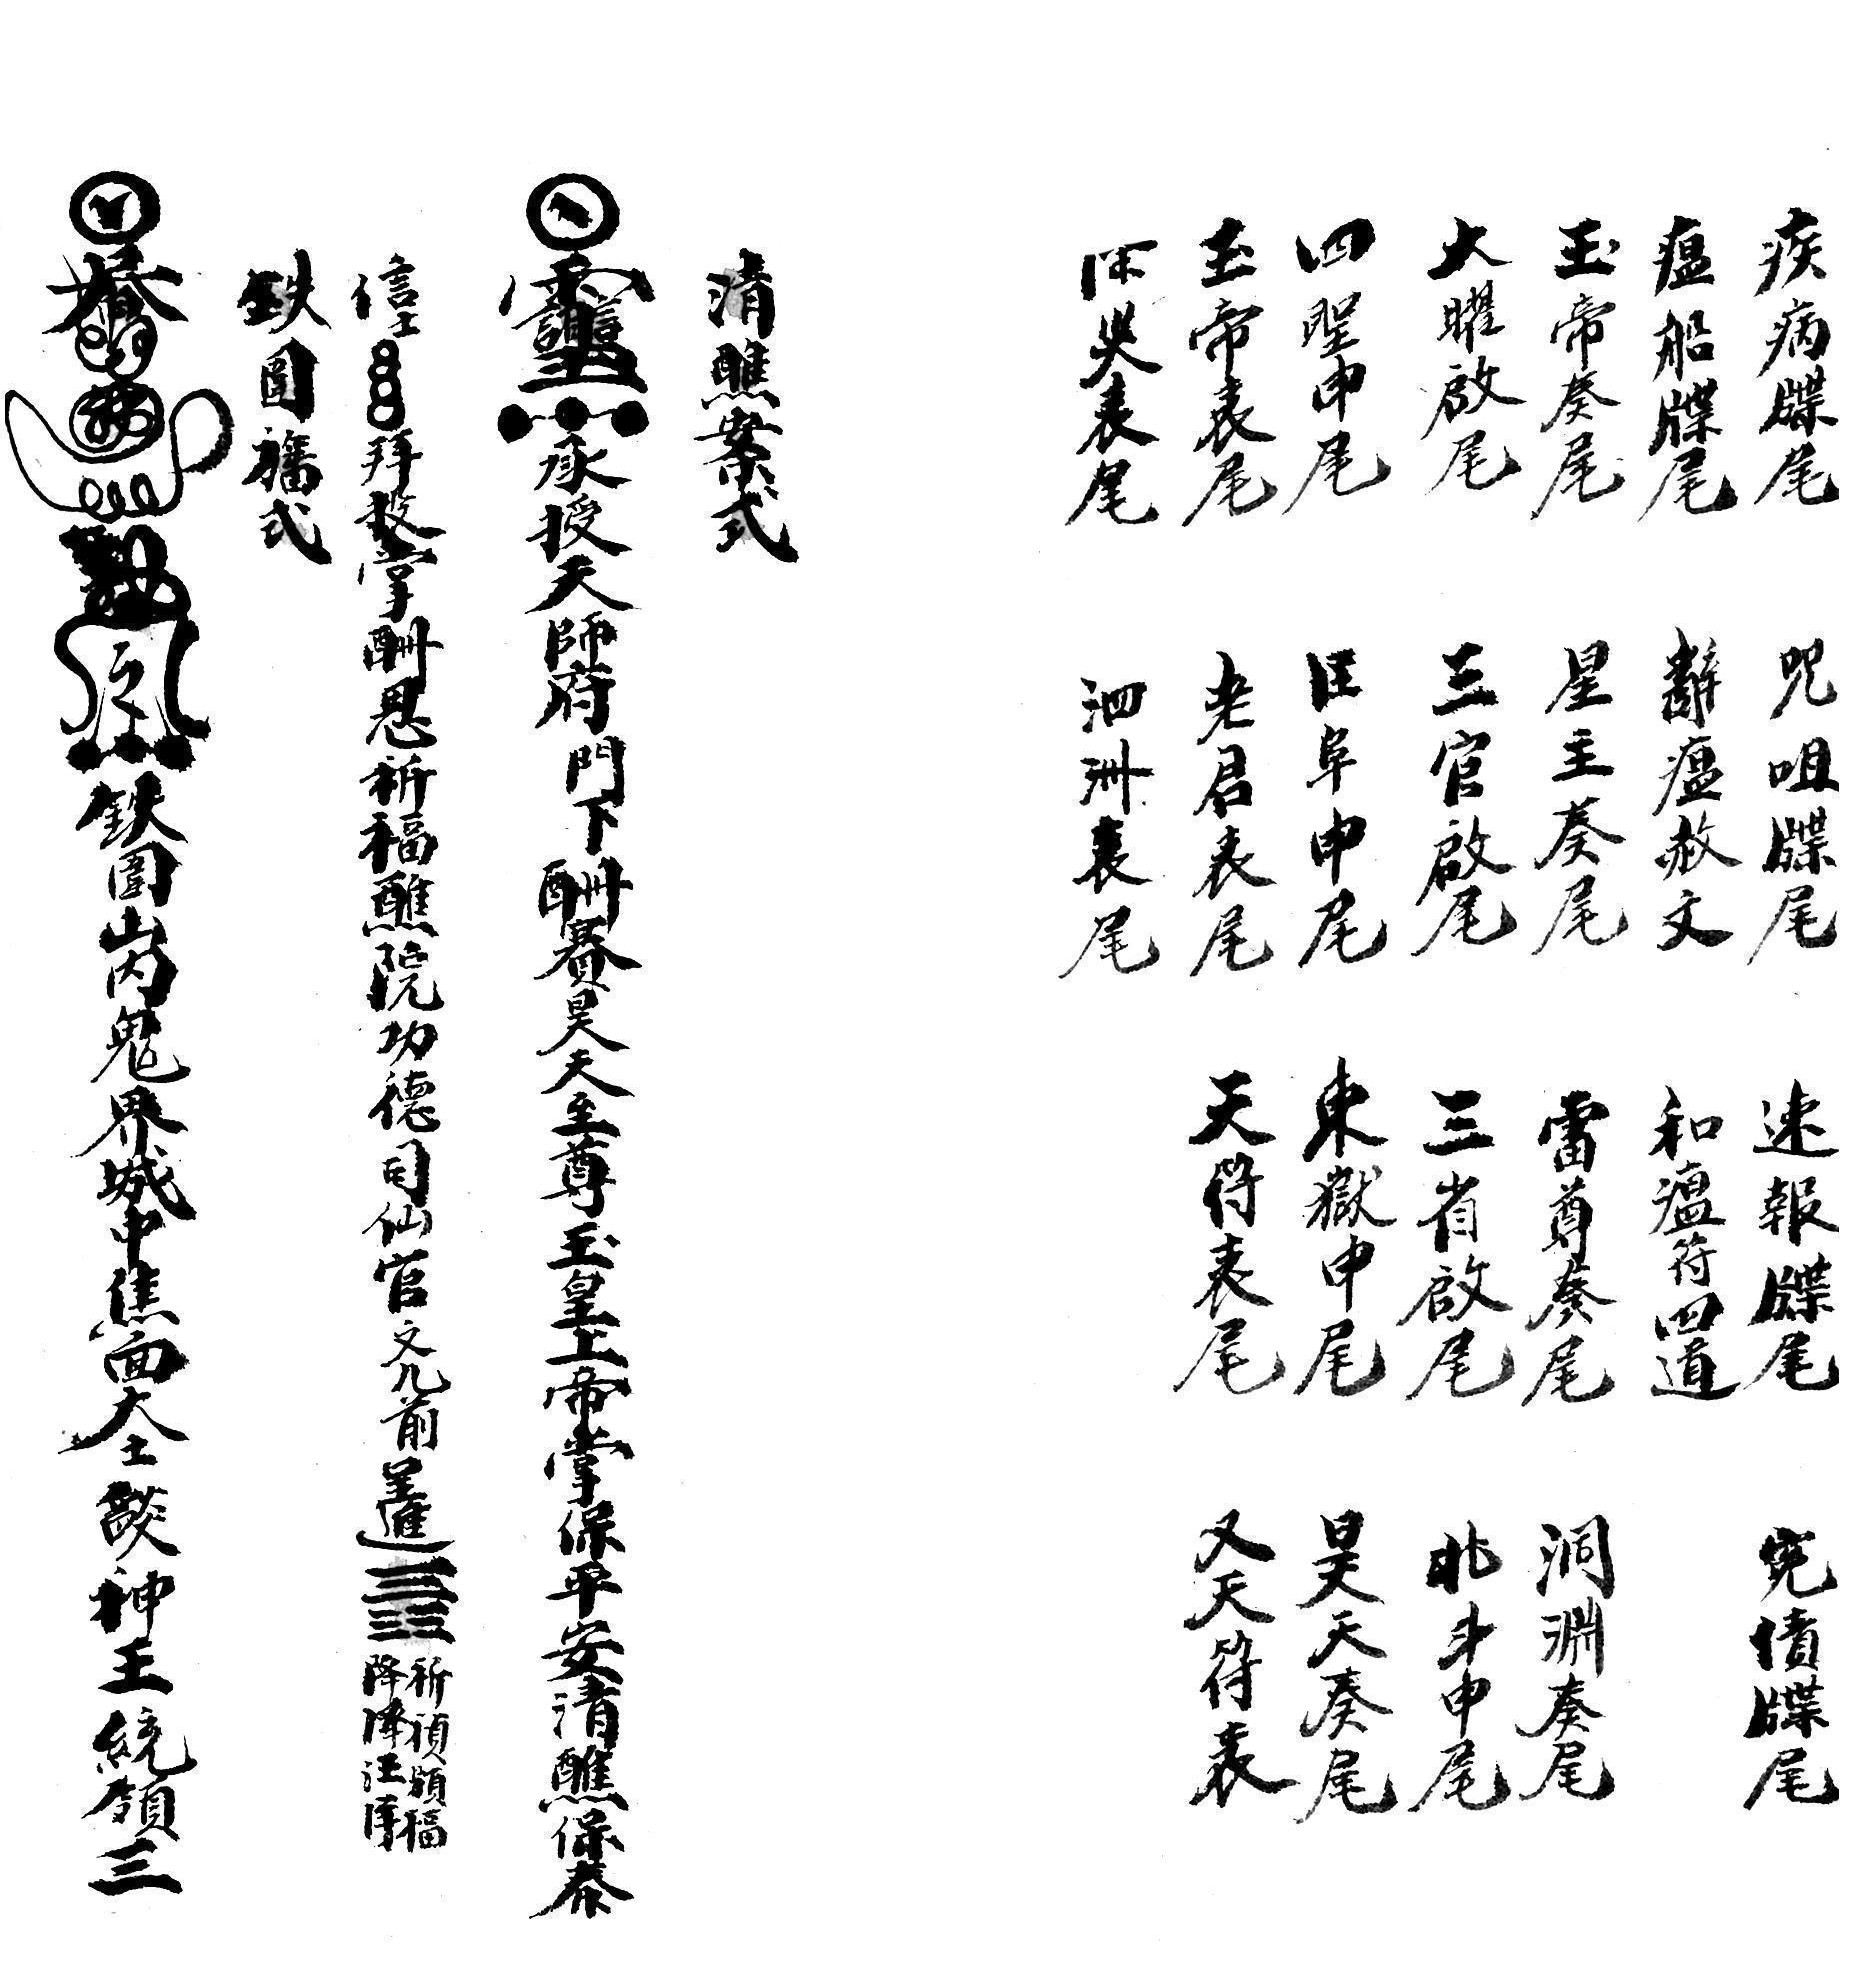 疾病牒尾　咒咀牒尾　速報牒尾　冤債牒尾
瘟船牒尾　辭瘟赦文　和瘟符四道
玉帝奏尾　星主奏尾　雷尊奏尾　洞淵奏尾
大曜啟尾　三官啟尾　三省啟尾　北斗申尾
四聖申尾　　阜申尾　東嶽申尾　昊天奏尾
玉帝表尾　老君表尾　天符表尾　又天符表
災表尾　泗洲表尾
清醮案式
承授天師府門下酬賽昊天至尊玉皇上帝掌保平安清醮保泰
信士　拜教掌酬恩祈福醮院功德司仙官文几前　進　祈禎　福
鉄圍旛式
鉄圍山内鬼界城中焦面大士　神王統領三